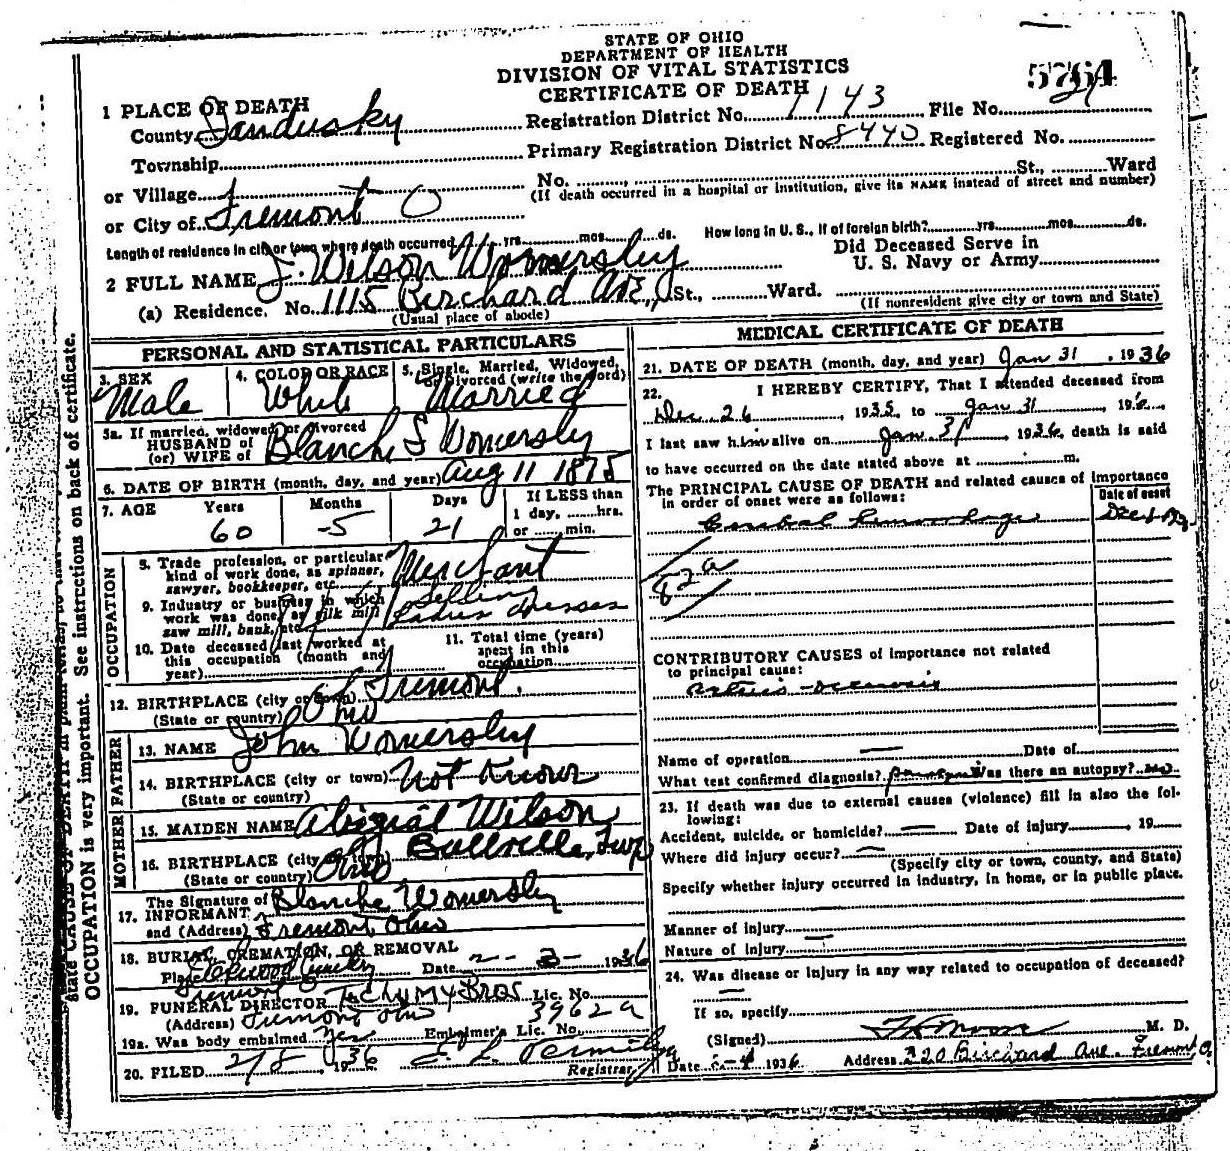 STATE OF OHIO
DEPARTMENT OF HEALTH
DIVISION OF VITAL STATISTICS
CERTIFICATE OF DEATH
5764
1 PLACE OF DEATH
County Sandusky Registration District No. 1143 File No. 21
Township Primary Registration District No. 8440 Registered No.
or Village No. , St., Ward
(If death occurred in a hospital or institution, give its NAME instead of street and number)
or City of Fremont O
Length of residence in city or town where death occurred yrs. mos. ds. How long in U. S., if of foreign birth? yrs. mos. ds.
2 FULL NAME J. Wilson Womersley Did Deceased Serve in U. S. Navy or Army
(a) Residence. No. 1115 Birchard Ave, St., Ward.
(Usual place of abode) (If nonresident give city or town and State)
state CAUSE OF DEATH in plain terms,
OCCUPATION is very important. See instructions on back of certificate.
PERSONAL AND STATISTICAL PARTICULARS
3. SEX Male
4. COLOR OR RACE White
5. Single, Married, Widowed, or Divorced (write the word) Married
5a. If married, widowed, or divorced
HUSBAND of
(or) WIFE of Blanche S Womersley
6. DATE OF BIRTH (month, day, and year) Aug 11 1875
7. AGE Years Months Days If LESS than
1 day, hrs.
60 5 21 or min.
OCCUPATION
8. Trade, profession, or particular
kind of work done, as spinner,
sawyer, bookkeeper, etc. Merchant
9. Industry or business in which
work was done, as silk mill
saw mill, bank, etc. Selling Ladies dresses
10. Date deceased last worked at
this occupation (month and
year)
11. Total time (years)
spent in this
occupation
12. BIRTHPLACE (city or town) Fremont.
(State or country) Ohio
FATHER
13. NAME John Womersley
14. BIRTHPLACE (city or town) Not Know
(State or country)
MOTHER
15. MAIDEN NAME Abigial Wilson
16. BIRTHPLACE (city or town) Ballville Twp
(State or country) Ohio
The Signature of Blanche Womersley
17. INFORMANT
and (Address) Fremont Ohio
18. BURIAL, CREMATION, OR REMOVAL
Place Oakwood Cemetery Date 2 - 3 - 1936
Fremont
19. FUNERAL DIRECTOR Tschumy Bros Lic. No.
(Address) Fremont Ohio 3962a
19a. Was body embalmed Yes Embalmer's Lic. No.
20. FILED 2/8, 1936 E. L. Vermilya
Registrar
MEDICAL CERTIFICATE OF DEATH
21. DATE OF DEATH (month, day, and year) Jan 31, 1936
22. I HEREBY CERTIFY, That I attended deceased from
Dec 26, 1935, to Jan 31, 196
I last saw him alive on Jan. 31, 1936, death is said
to have occurred on the date stated above at m.
The PRINCIPAL CAUSE OF DEATH and related causes of importance
in order of onset were as follows:
Date of onset
Cerebral hemorrhage
82a
CONTRIBUTORY CAUSES of importance not related
to principal cause:
Arterio-sclerosis
Name of operation — Date of
What test confirmed diagnosis? Was there an autopsy? no
23. If death was due to external causes (violence) fill in also the following:
Accident, suicide, or homicide? — Date of injury , 19
Where did injury occur? —
(Specify city or town, county, and State)
Specify whether injury occurred in industry, in home, or in public place.
Manner of injury
Nature of injury —
24. Was disease or injury in any way related to occupation of deceased?
—
If so, specify
(Signed) M. D.
Date 2-4 1936 Address 320 Birchard Ave. Fremont O.